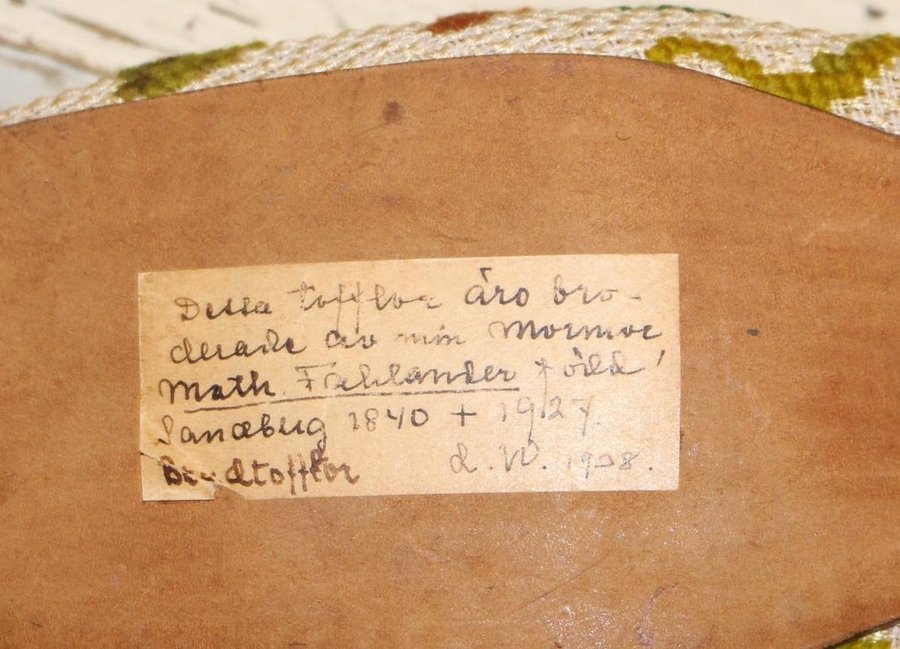 Dessa tofflor äro bro-
derade av min Mormor
Math. Fahlander * född
Sandberg 1840 + 1927.
Brudtofflor L.W. 1938.